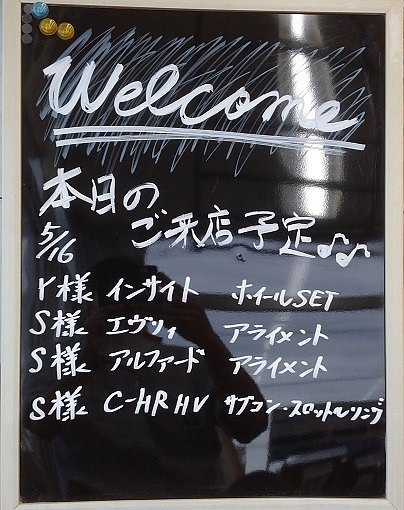 Welcome
本日の
5/16 ご来店予定♪♫
Y様 インサイト ホイールSET
S様 エヴリィ アライメント
S様 アルファード アライメント
S様 C-HR HV サブコン・スロットルリング